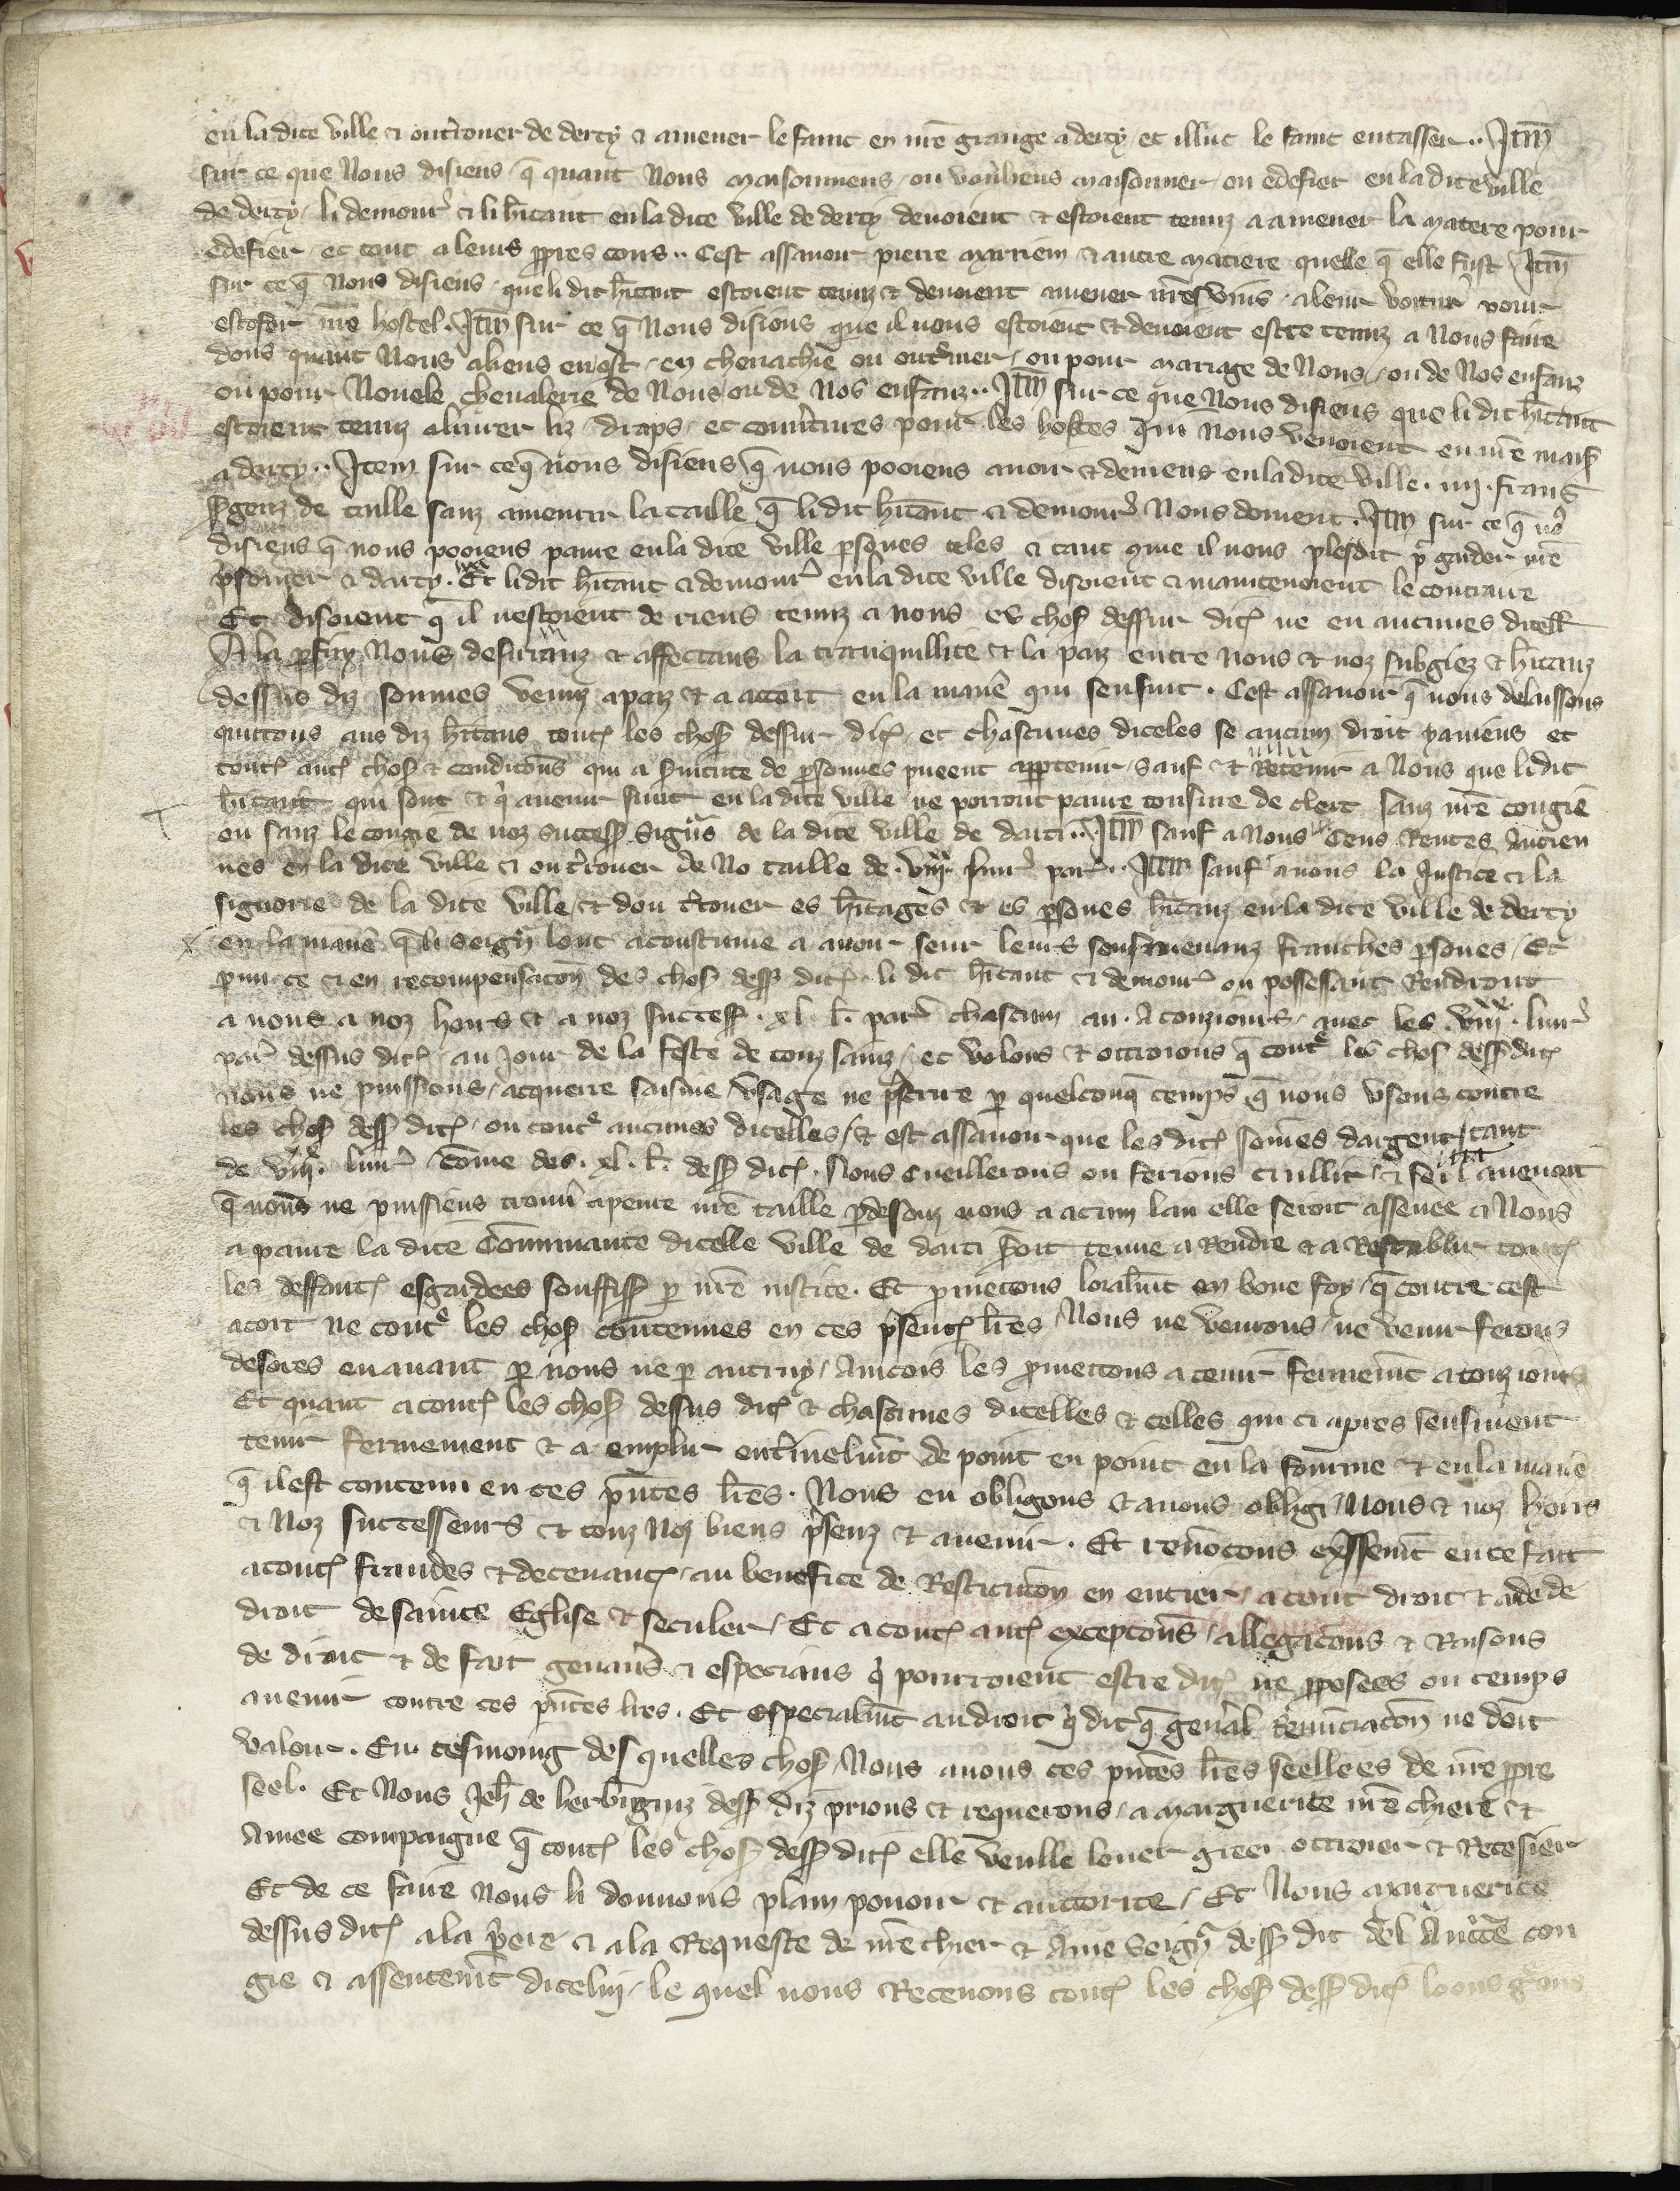 en la dite ville et ou t̾rouer de derty et amener le fainc en nr̄e grange a derty et illuc le fainc entasser .. Itm̄
sur ce que Nous disiens q̄ quant Nous maisonniens ou vouliens maisonner ou edefier en la dite ville
de derty / li demour̾ et li hīt̄ant en la dite ville de derty devoient et estoient tenuz a amener la matere pour
edefier / et tout a leurs ꝓpres cous .. Cest assavoir pierre marriem et autre matiere quelle q̄ elle fust Itm̄
sur ce q̄ Nous disiens que li dit hīt̄ant estoient tenuz et devoient amener nr̄es vins a leur voitur̾ pour
estofer nr̄e hostel . Itm̄ sur ce q̄ Nous disions que il nous estoient et devoient estre tenuz a Nous faire
dons quant Nous aliens en ost / en chevachie ou out̾mer / ou pour mariage de Nous / ou de Nos enfanz
ou pour Novele chevalerie de Nous / ou de Nos enfanz .. Itm̄ sur ce que Nous disiens que li dit hīt̄ant
estoient tenuz a livrer liz / draps / et couv̾tures pour les hostes qui Nous venoient en nr̄e mais̾
a derty .. Item sur ce q̄ nous disiens q̄ nous pooiens avoir et deviens en la dite ville . iiij . frans
s̾genz de taille sanz amenrir la taille q̄ li dit hīt̄ant et demour̾ Nous doivent . Itm̄ sur ce q̄ no̾
disiens q̄ nous pooiens panre en la dite ville ꝑsones teles et tant q̄me il nous plesoit p̾ garder nr̄e
p̾sonier a darty . Et li dit hīt̄ant et demour̾ en la dite ville disoient et maintenoient le contraire
Et disoient q̄ il nestoient de riens tenuz a nous es chos̾ dessur dit̾ ne en aucunes dicell̾
A la ꝑfin Nous desirranz et affectans la tranquillite et la paiz entre nous et noz subgiez et hīt̄anz
dessus diz sonmes venuz a paiz et a acort en la mañe qui sensuit . Cest assavoir q̄ nous delaissons
quittons aus diz hīt̄ans tout̾ les chos̾ dessur dit̾ / et chascunes diceles se aucun droit y aviens et
tout̾ aut̾ chos̾ et condiciōns qui a s̾vitute de ꝑsonnes pueent apꝑtenir / Sauf et Retenu a Nous que li dit
hīt̄ant qui sont et q̾ avenir sunt en la dite ville ne porront panre tonsure de clerc sanz nr̄e congie
ou sanz le congie de noz success̾ signrs de la dite ville de darti .. Itm̄ sauf a Nous Cens Rentes Ancien
nes en la dite ville et ou t̾rouer de No taille de . viijxx . livr̾ par̾ .. Itm̄ sauf a nous la Justice et la
signorie de la dite ville / et dou t̾rouer es hīt̄ages et es ꝑsones hīt̄anz en la dite ville de derty
en la mañe q̄ li seignr̾ lont acoustume a avoir seur leurs sousmenanz franches ꝑsones / Et
ꝑmi ce et en recompensaciōn des chos̾ dess̾ dit̾ li dit hīt̄ant et demour̾ ou possessant Rendront
a nous a noz hoirs et a noz success̾ . xl . l̄. par̾ chascun an . A touzjours / avec les . viijxx . livr̾
par̾ dessus dit̾ / au Jour de la feste de touz sainz / et volons et ottroions q̄ contre les chos̾ dess̾ dit̾
nous ne puissions / acquerre saisine / usage ne p̾scrire ꝑ quelconq̄ temps q̄ nous usons contre
les chos̾ dess̾ dit̾ / ou contre aucunes dicelles / et est assavoir que les dit̾ somēs dargent / tant
de viijxx . livr̾ cōme des . xl . l̄. dess̾ dit̾ . Nous cueillerons ou ferions cuillir / et se il avenoit
q̄ nous ne puissiens trouv̾ a penre nr̄e taille ꝑ desouz nous a aucun lan elle seroit assenee a Nous
a panre la dite Cōmunaute dicelle ville de darti s̾oit tenue a Rendre et a Restablir tout̾
les deffaut̾ esgardees souffis̾ ꝑ nr̄e justice . Et ꝓmetons loialm̄t en bone foy / q̄ contre cest
acort ne contre les chos̾ contenues en ces p̾sent̾ lr̄es Nous ne venrons / ne venir ferons
desores en avant ꝑ nous ne ꝑ autruy / Ainçois les ꝓmettons a tenir ferment̄ a touzjours
Et quant a tout̾ les chos̾ dessus dit̾ et chascunes dicelles et celles qui ci apres sensuient
tenir fermement et a emplir ent̾inelm̄t de point en point en la fourme et en la mañe
q̄ il est contenu en ces p̄ntes lr̄es . Nous en obligons et avons obligi / Nous et noz hoirs
et Noz successeurs et touz Noz biens p̾senz et avenir . Et renōcons exp̾ssem̄t en ce fait
a tout̾ fraudes et decevanc̾ / au benefice de Restituciōn en entier / a tout droit et aide de
droit de sainte Eglise et seculer / Et a tout̾ aut̾ exceptiōns / allegaciōns et Raisons
de droit et de fait geneaus̾ et especiaus q̾ pourroient estre dit̾ ne ꝓposees ou temps
avenir contre ces p̄ntes lr̄es . Et especialm̄t au droit q̾ dit q̄ gen̾al renunciaciōn ne doit
valoir . En tesmoing des quelles chos̾ / Nous avons ces p̄ntes lr̄es seellees de nr̄e ꝓpre
seel . Et Nous Jeh̄ de herbīginz dess̾ diz prions et requerons / a Marguerite nr̄e chiere et
Amee compaigne q̄ tout̾ les chos̾ dess̾ dit̾ elle veulle louer greer ottroier et Recesier
Et de ce faire Nous li donnons plain povoir et auctorite / Et Nous Marguerite
dessus dit̾ a la p̾iere et a la Requeste de nr̄e chier et Ame Seignr̾ dess̾ dit del Auct̾te con
gie et assentem̄t dicelui / le quel nous Recevons tout̾ les chos̾ dess̾ dit̾ loons g̾eons